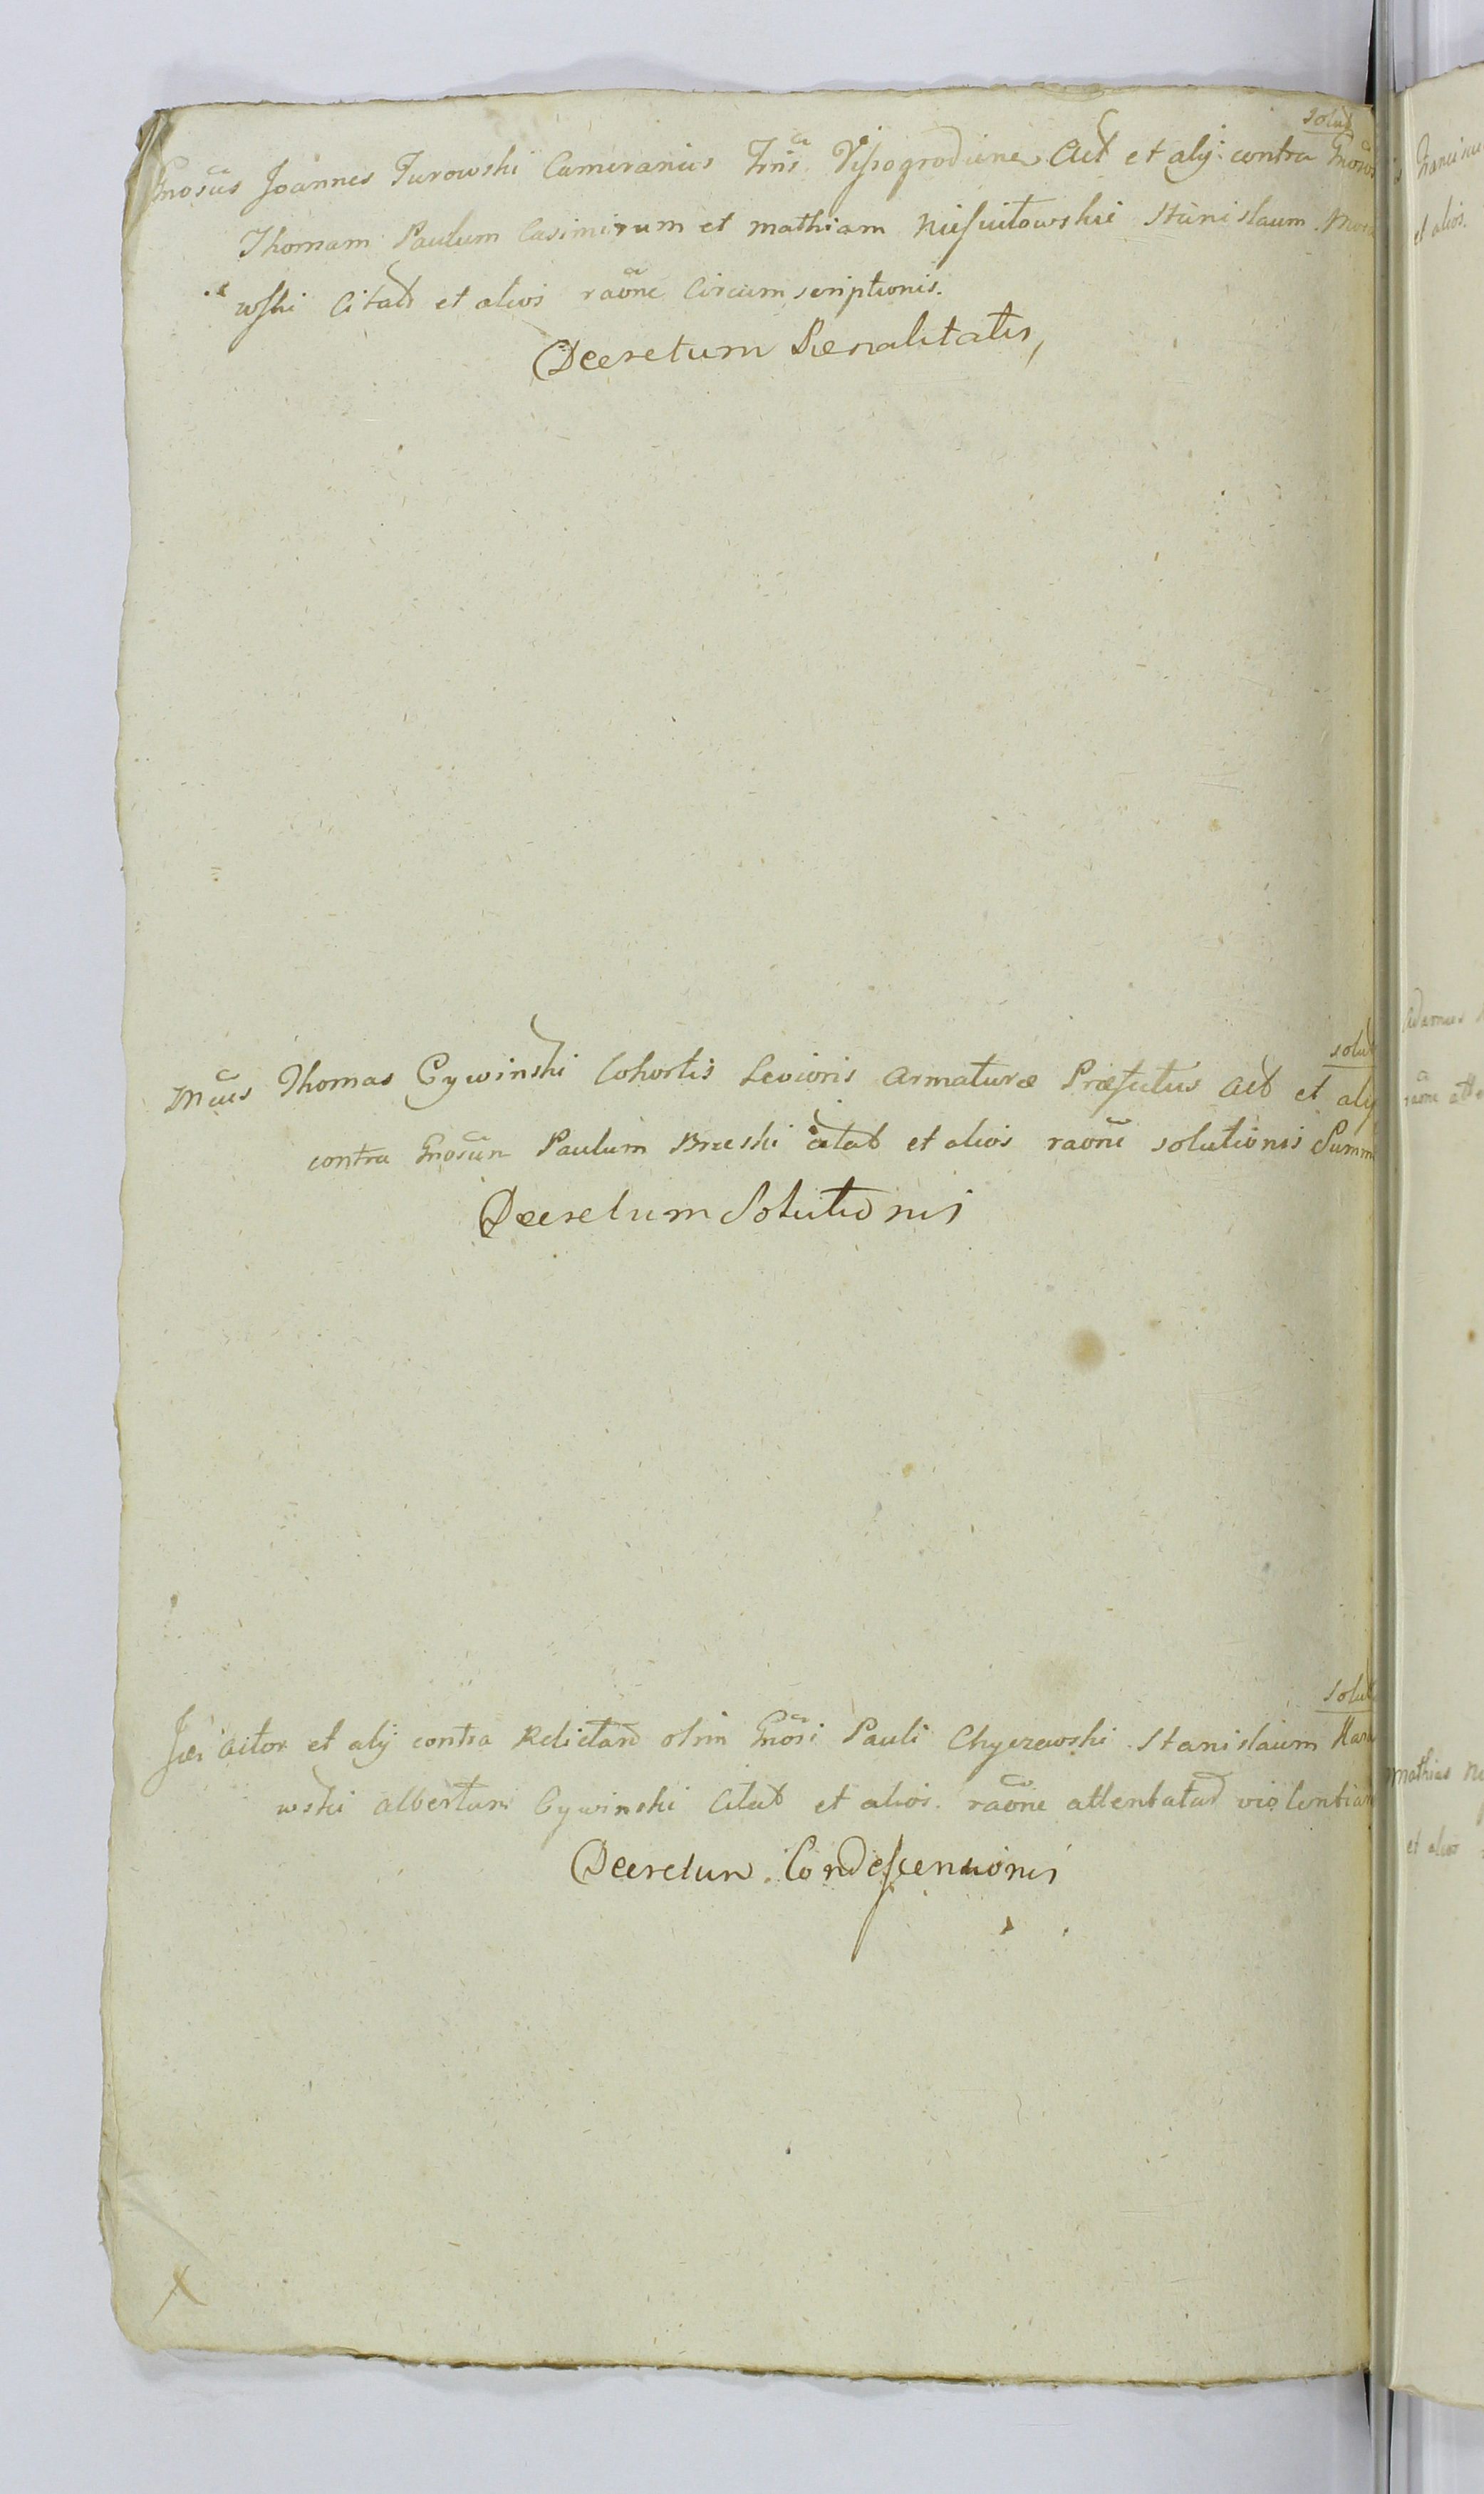 solut
Gnosus Joannes Turowski Camerarius Trris Vissogrodiens Act et alij contra Gnosos
Thomam Paulum Casimirum et Mathiam Niesuitowskie Stanislaum
wski Citatt et alios raone Circumscriptionis.
Decretum Poenalitatis,
solut
Mcus Thomas Cywinski Cohortis Levioris Armaturæ Præfectus Act et alij
contra Gnosum Paulum Brzeski citat et alios raone solutionis Summ
Decretum Solutionis
solut
Actor et alij contra Relictam olim Gnosi Pauli Chyczewski Stanislaum
wski Albertum Cywinski Citat et alios raone attentatar violentiar
Decretum Condescensionis
X
Franciscu
et alios.
Adamus
raone atte
Mathias Ni
et alios